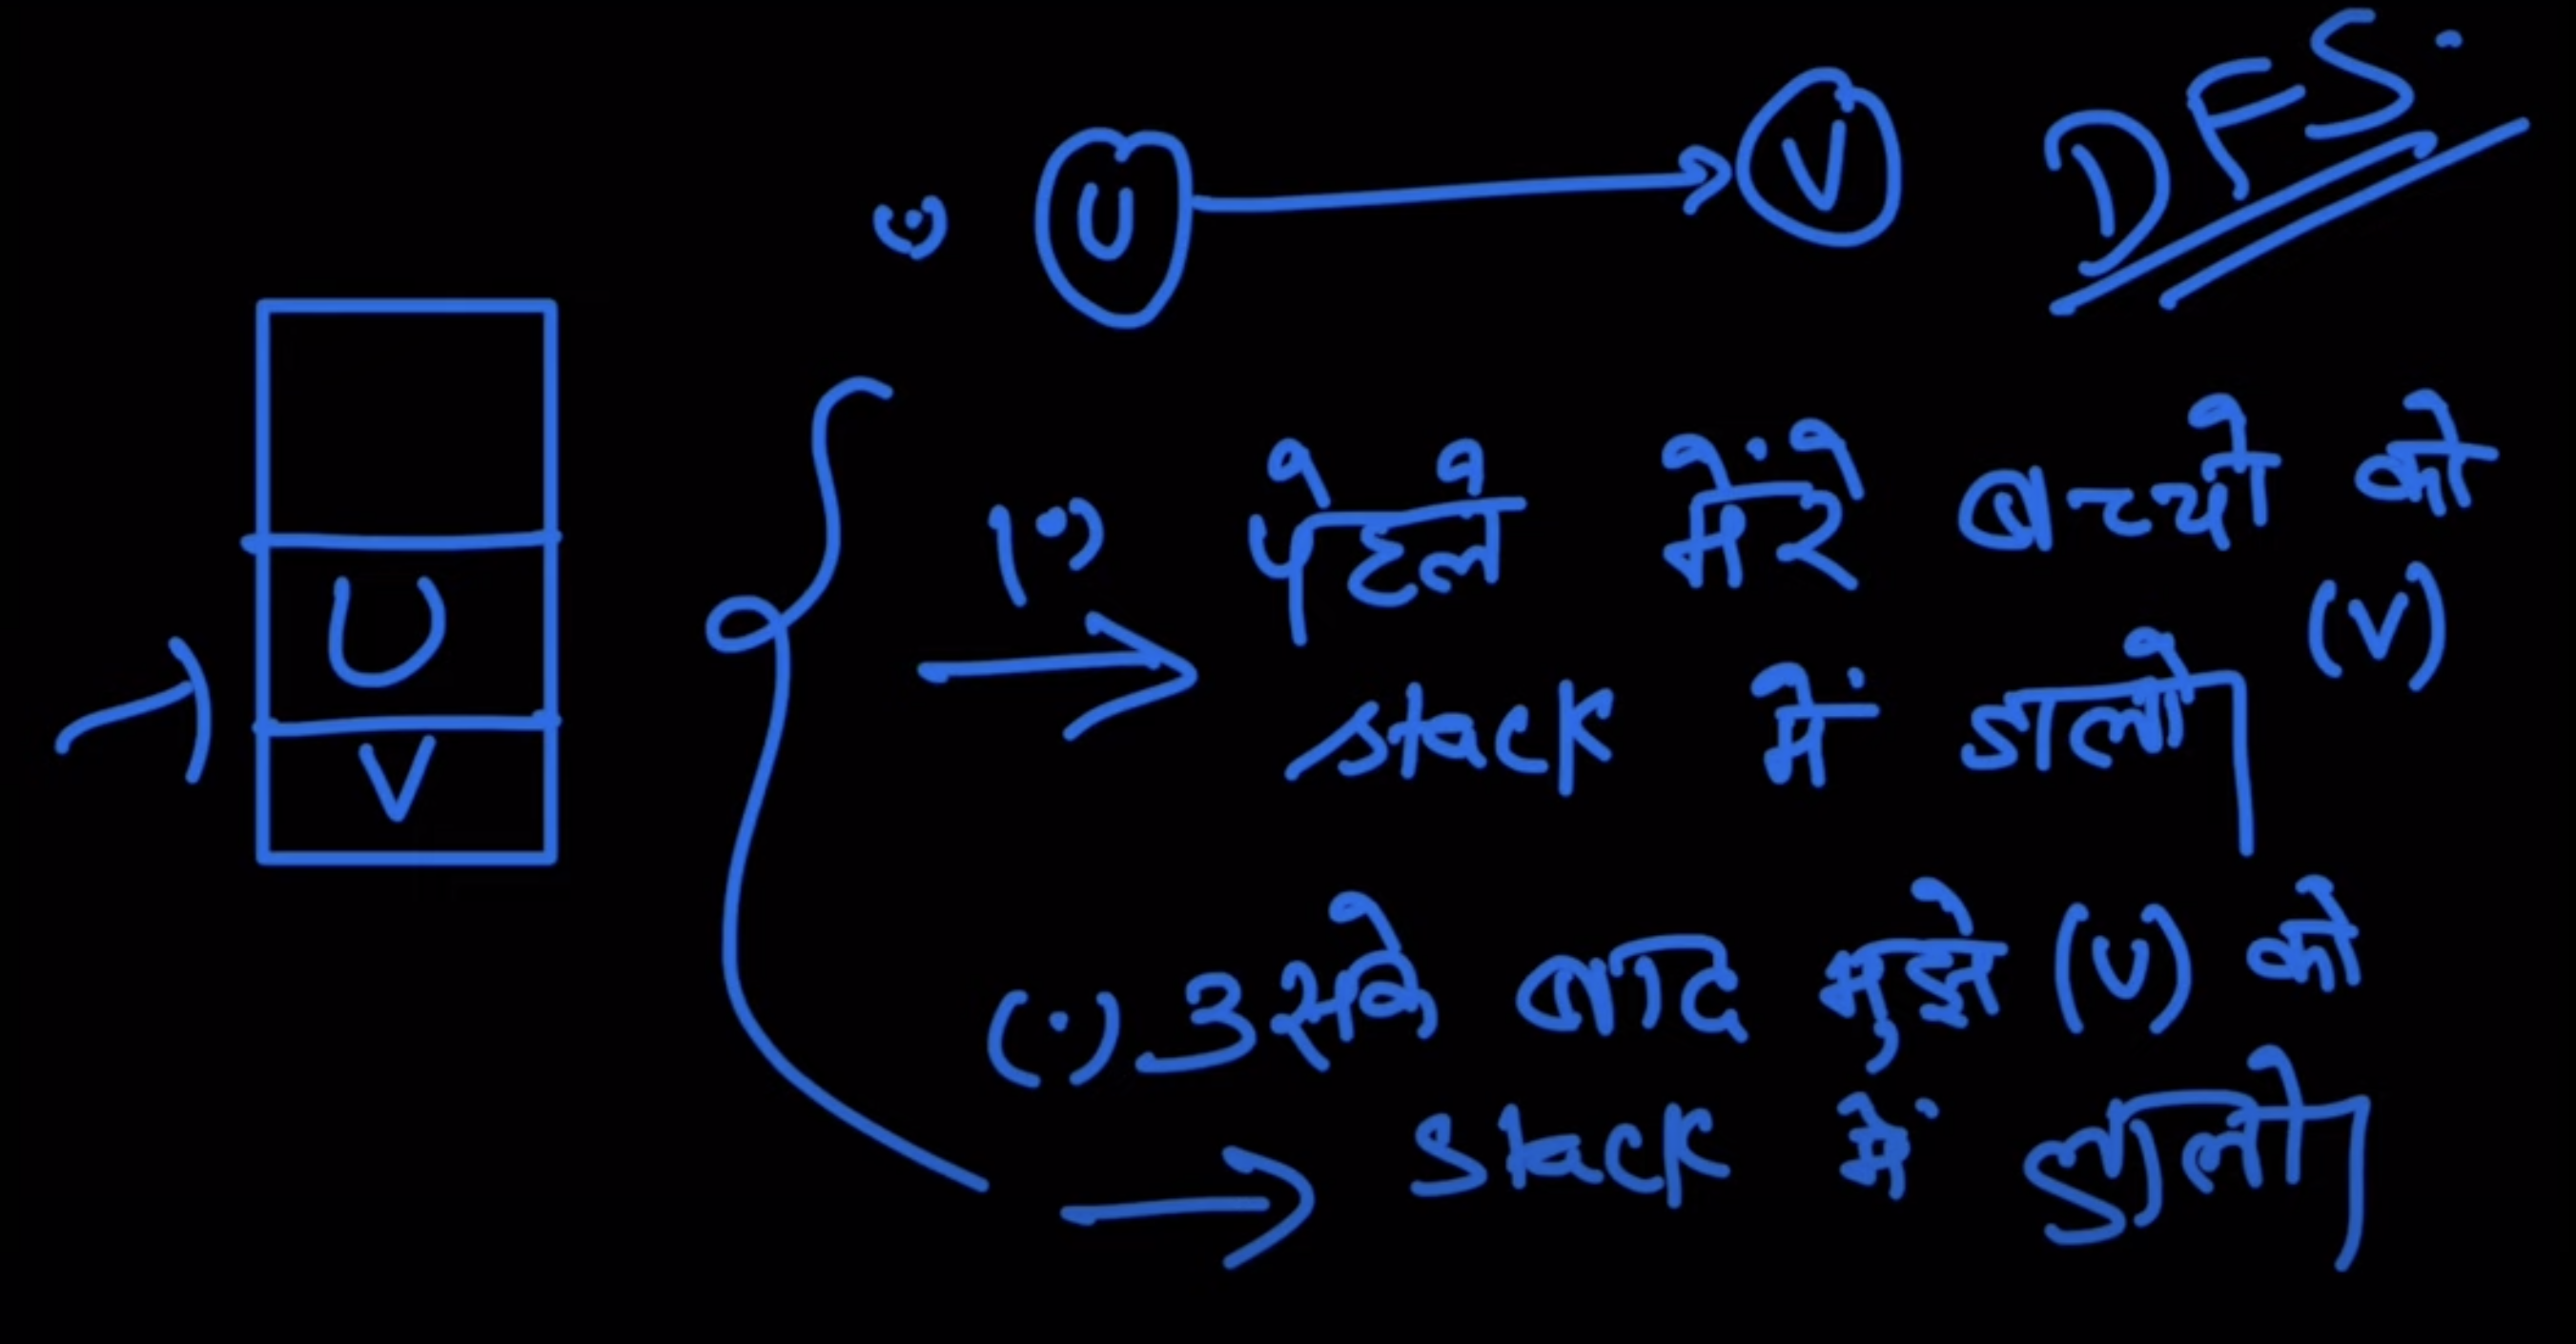 U V DFS.
1.) पेहले मेरे बच्चो को
(V)
stack में डालो
U
V
(.) उसके बाद मुझे (U) को
stack में डालो